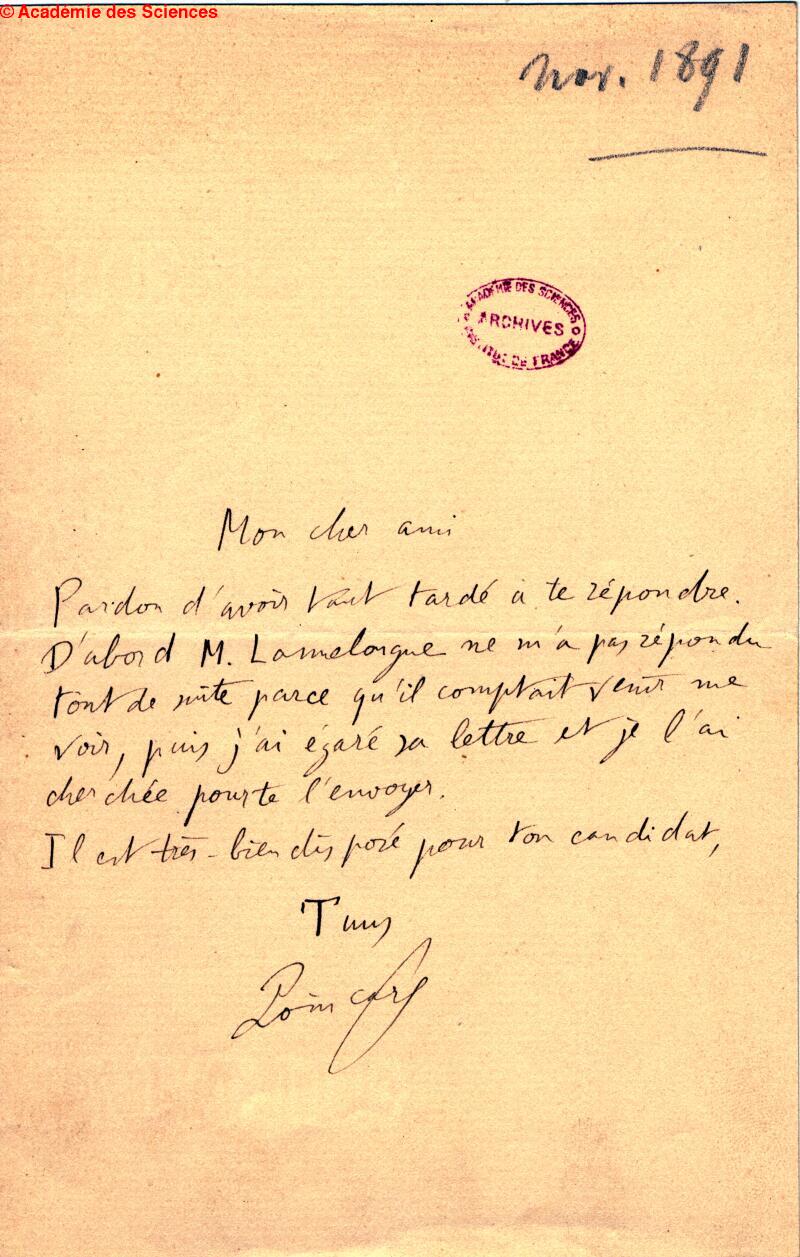 © Académie des Sciences
nov. 1891
ACADÉMIE DES SCIENCES
ARCHIVES
INSTITUT DE FRANCE
Mon cher ami
Pardon d'avoir tant tardé à te répondre.
D'abord M. Lamelongue ne m'a pas répondu
tout de suite parce qu'il comptait venir me
voir, puis j'ai égaré sa lettre et je l'ai
cherchée pour te l'envoyer.
Il est très-bien disposé pour ton candidat,
Tuus
Poincaré